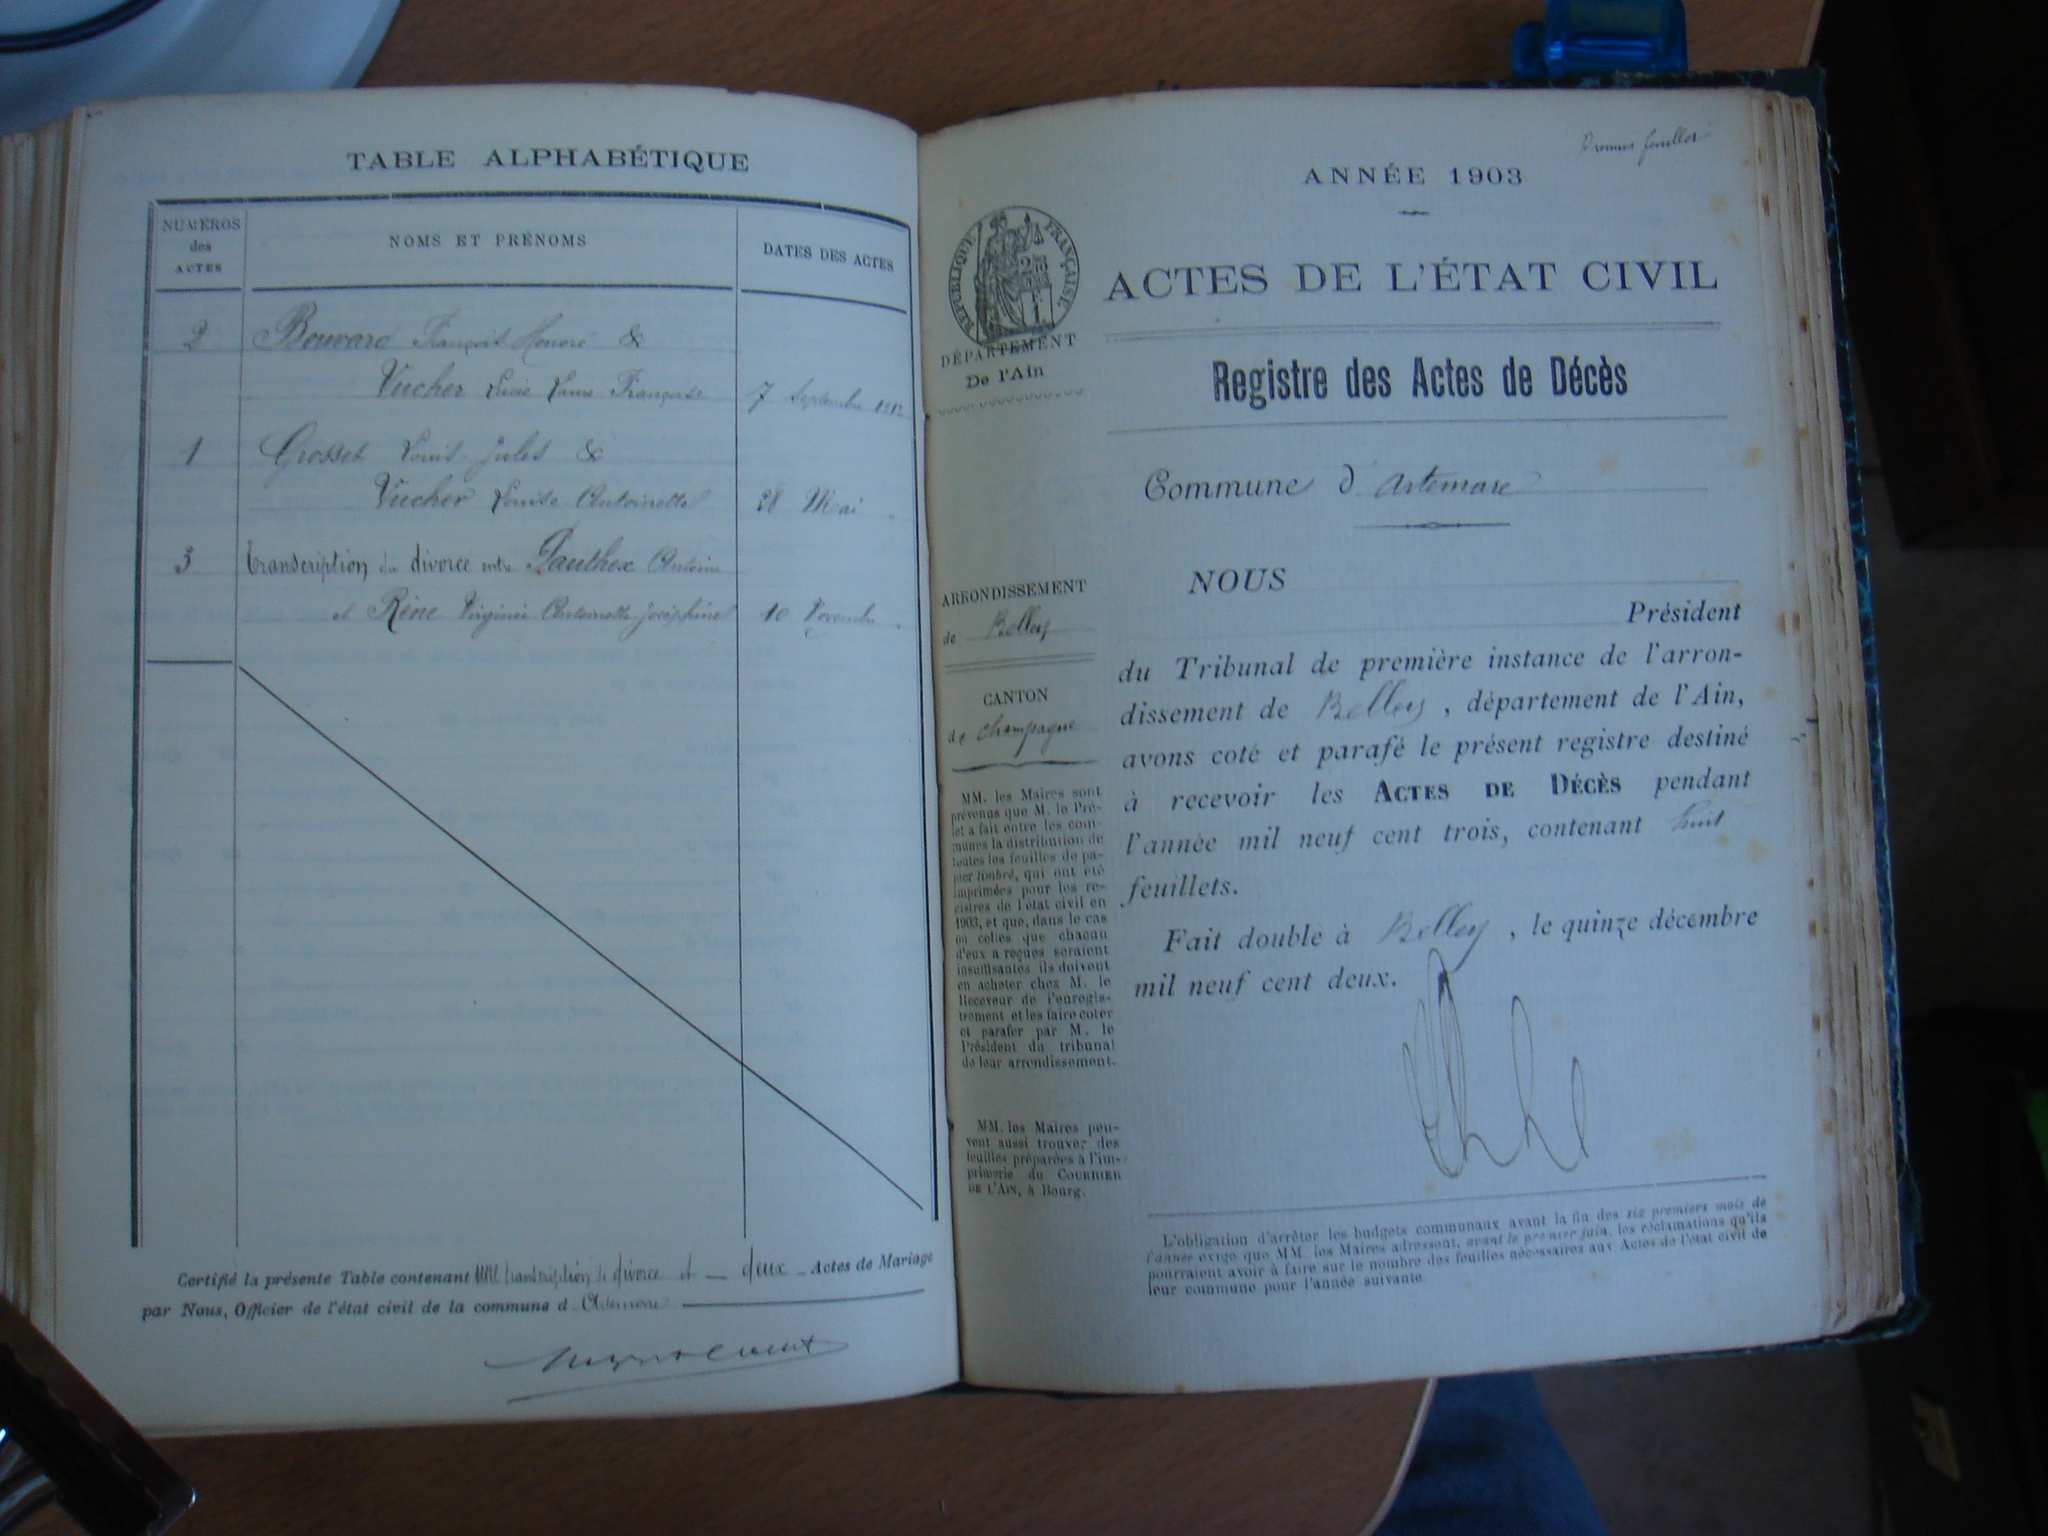 TABLE ALPHABÉTIQUE
NUMÉROS
des
ACTES
NOMS ET PRÉNOMS
DATES DES ACTES
2 Bouvard François Honoré &
Vucher Lucie Françoise 7 Septembre
1 Grosset Louis Jules &
Vucher Louise Antoinette 28 Mai
3 Transcription du divorce entre Pauthex Antoine
et Rène Virginie Antoinette Joséphine 10 Novembre
Certifié la présente Table contenant une transcription de divorce et deux Actes de Mariage
par Nous, Officier de l'état civil de la commune d Artemare
Premier feuillet
ANNÉE 1903
RÉPUBLIQUE FRANÇAISE
DÉPARTEMENT
De l'Ain
ACTES DE L'ÉTAT CIVIL
Registre des Actes de Décès
Commune d'Artemare
ARRONDISSEMENT
de Belley
CANTON
de Champagne
MM. les Maires sont
prévenus que M. le Pré-
fet a fait entre les com-
munes la distribution de
toutes les feuilles de pa-
pier timbré, qui ont été
imprimées pour les re-
gistres de l'état civil en
1903, et que, dans le cas
où celles que chacun
d'eux a reçues seraient
insuffisantes ils doivent
en acheter chez M. le
Receveur de l'enregis-
trement et les faire coter
et parafer par M. le
Président du tribunal
de leur arrondissement.
MM. les Maires peu-
vent aussi trouver des
feuilles préparées à l'im-
primerie du COURRIER
DE L'AIN, à Bourg.
NOUS
Président
du Tribunal de première instance de l'arron-
dissement de Belley, département de l'Ain,
avons coté et parafé le présent registre destiné
à recevoir les ACTES DE DÉCÈS pendant
l'année mil neuf cent trois, contenant huit
feuillets.
Fait double à Belley, le quinze décembre
mil neuf cent deux.
L'obligation d'arrêter les budgets communaux avant la fin des six premiers mois de
l'année exige que MM. les Maires adressent, avant le premier juin, les réclamations qu'ils
pourraient avoir à faire sur le nombre des feuilles nécessaires aux Actes de l'état civil de
leur commune pour l'année suivante.